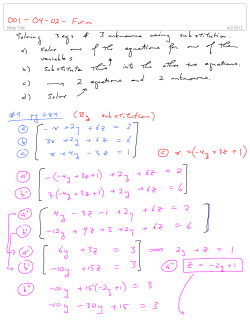 001 - 04-02 - Fim
Note Title
4/2/2012
Solving 3 eqs & 3 unknowns using substitution.
a) Solve one of the equations for one of the variables
b) Substitute this into the other two equations.
c) → 2 equations and 2 unknowns.
d) Solve
(By substitution)
(a) - x + 2y + 6z = 2
(b) 3x + 2y + 6z = 6
(c) x + 4y - 3z = 1
(c) x = (-4y + 3z + 1)
(a') -(-4y + 3z + 1) + 2y + 6z = 2
(b') 3·(-4y + 3z + 1) + 2y + 6z = 6
(a') 4y - 3z - 1 + 2y + 6z = 2
(b') -12y + 9z + 3 + 2y + 6z = 6
(a') 6y + 3z = 3 ⟹ 2y + z = 1
(b') -10y + 15z = 3
(a") z = -2y + 1
-10y + 15(-2y + 1) = 3
-10y - 30y + 15 = 3